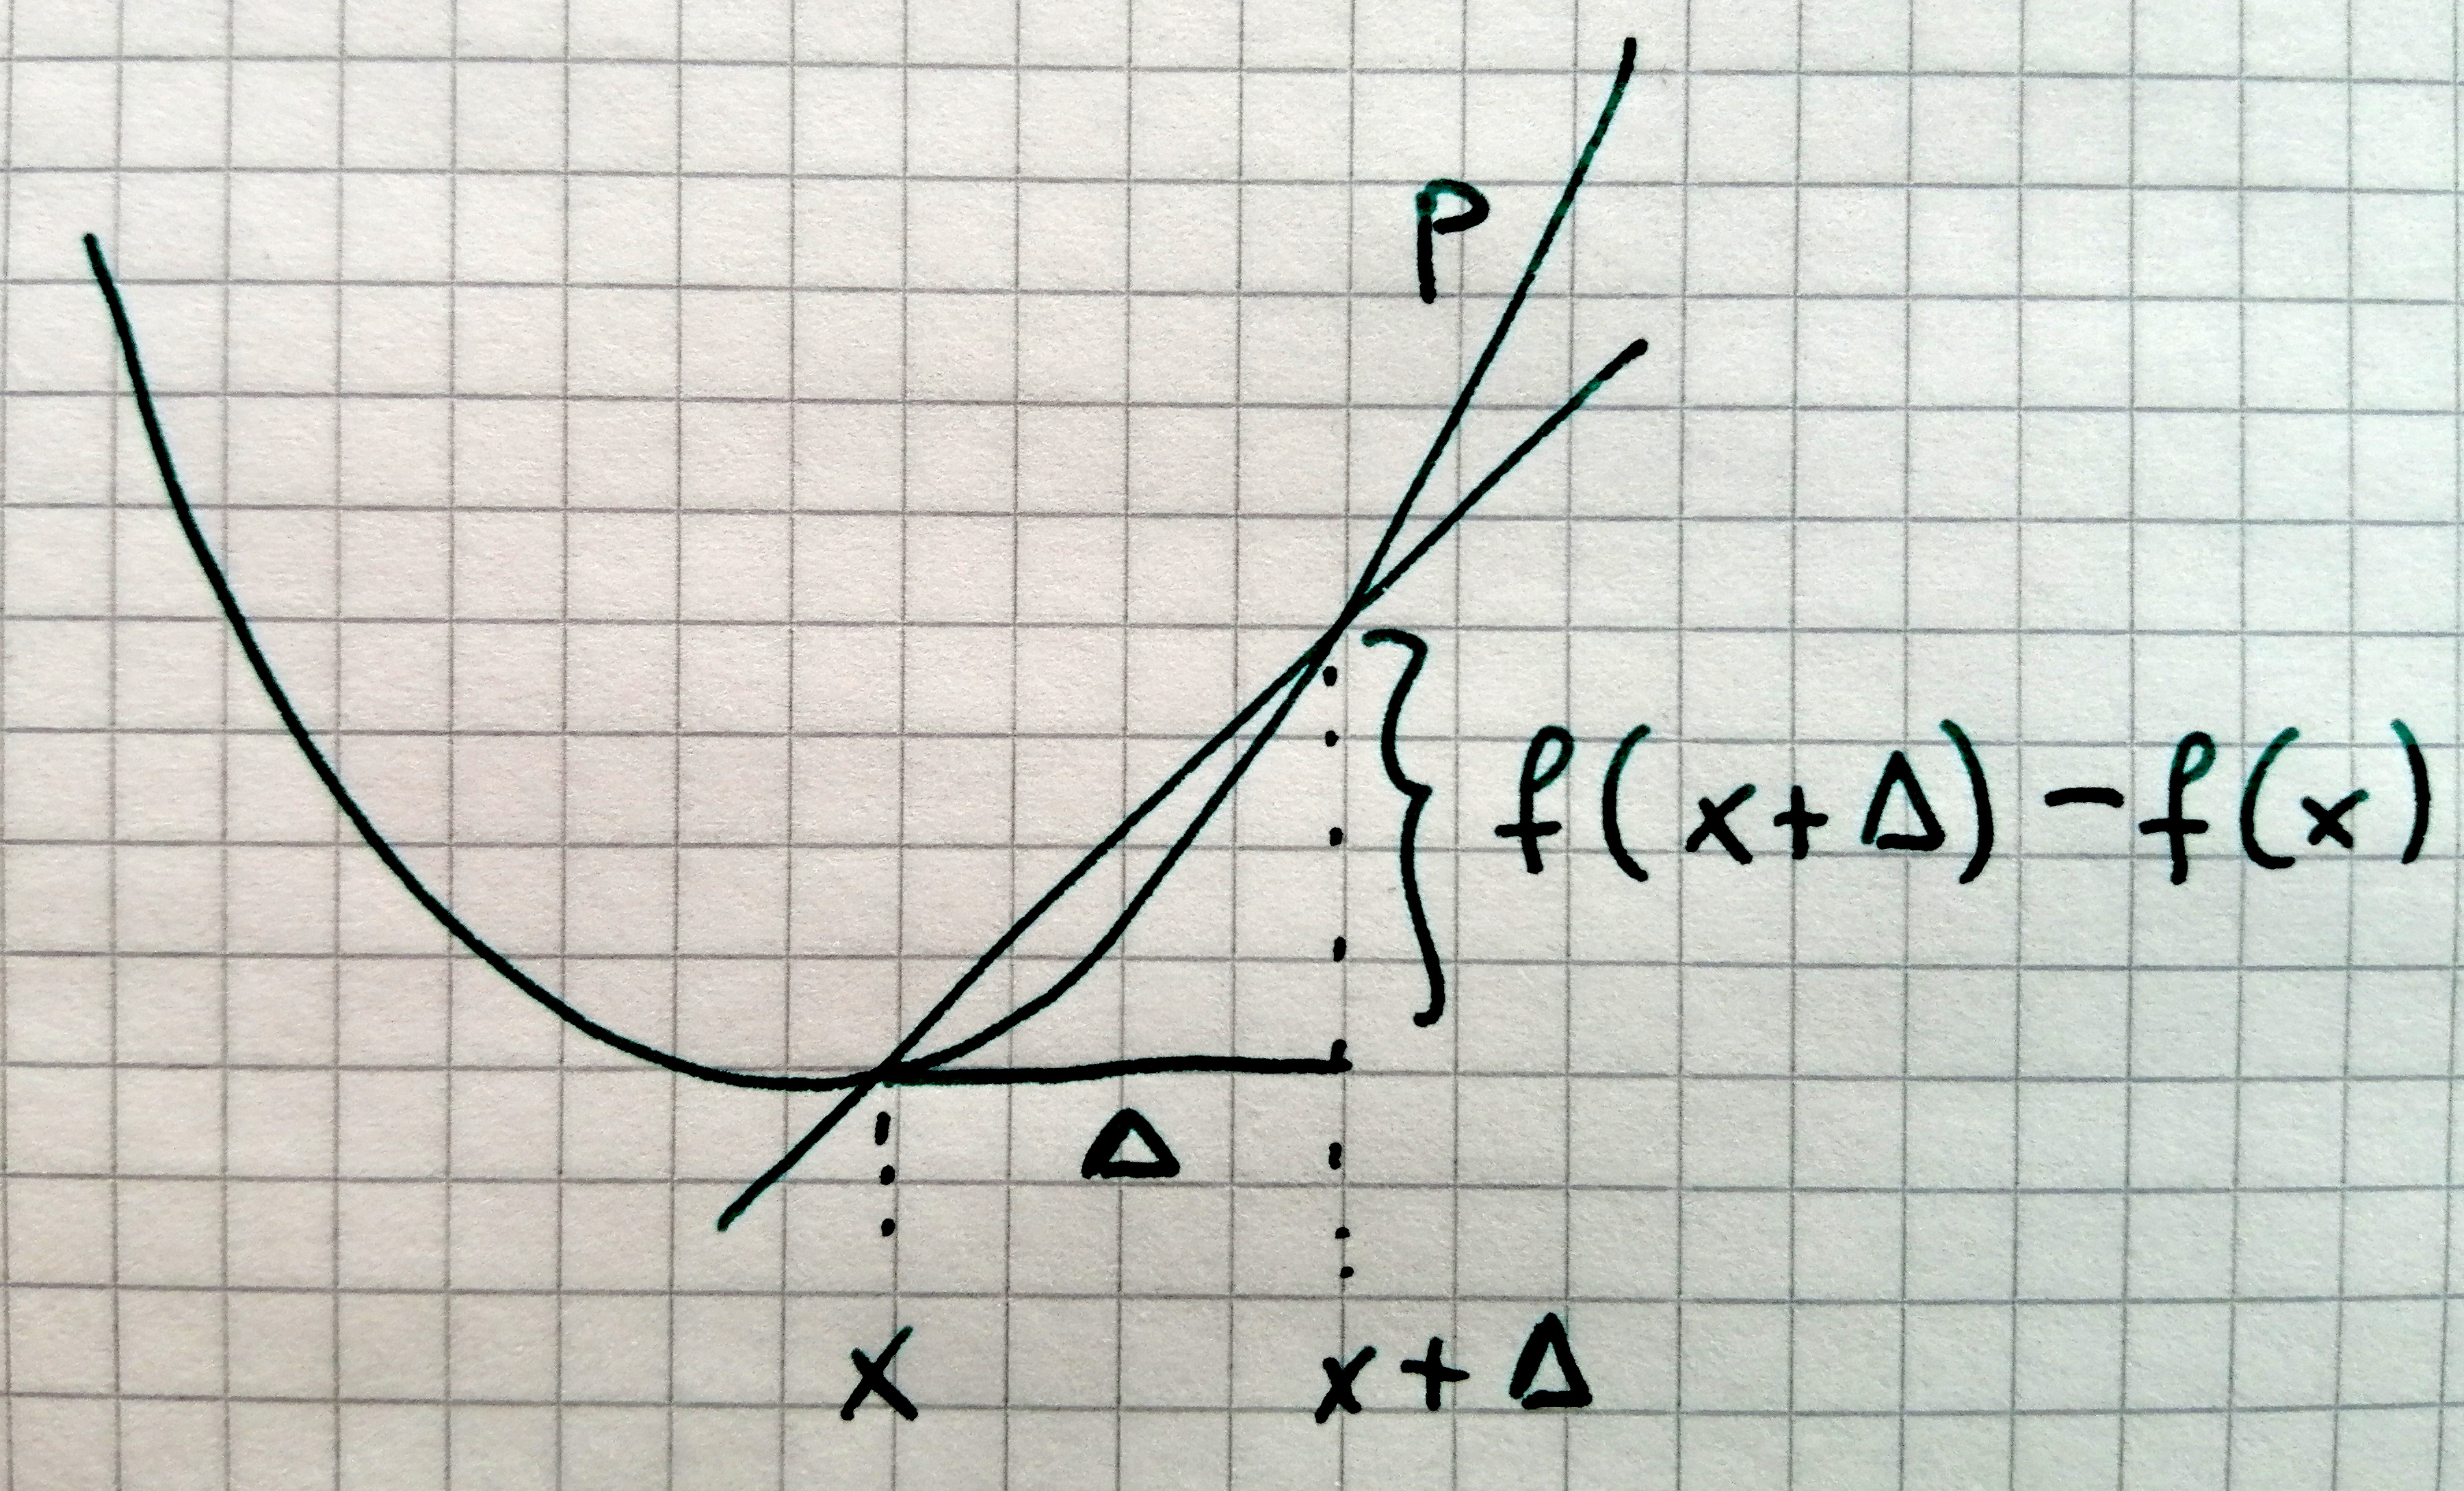 P
f(x+Δ)-f(x)
Δ
x
x+Δ